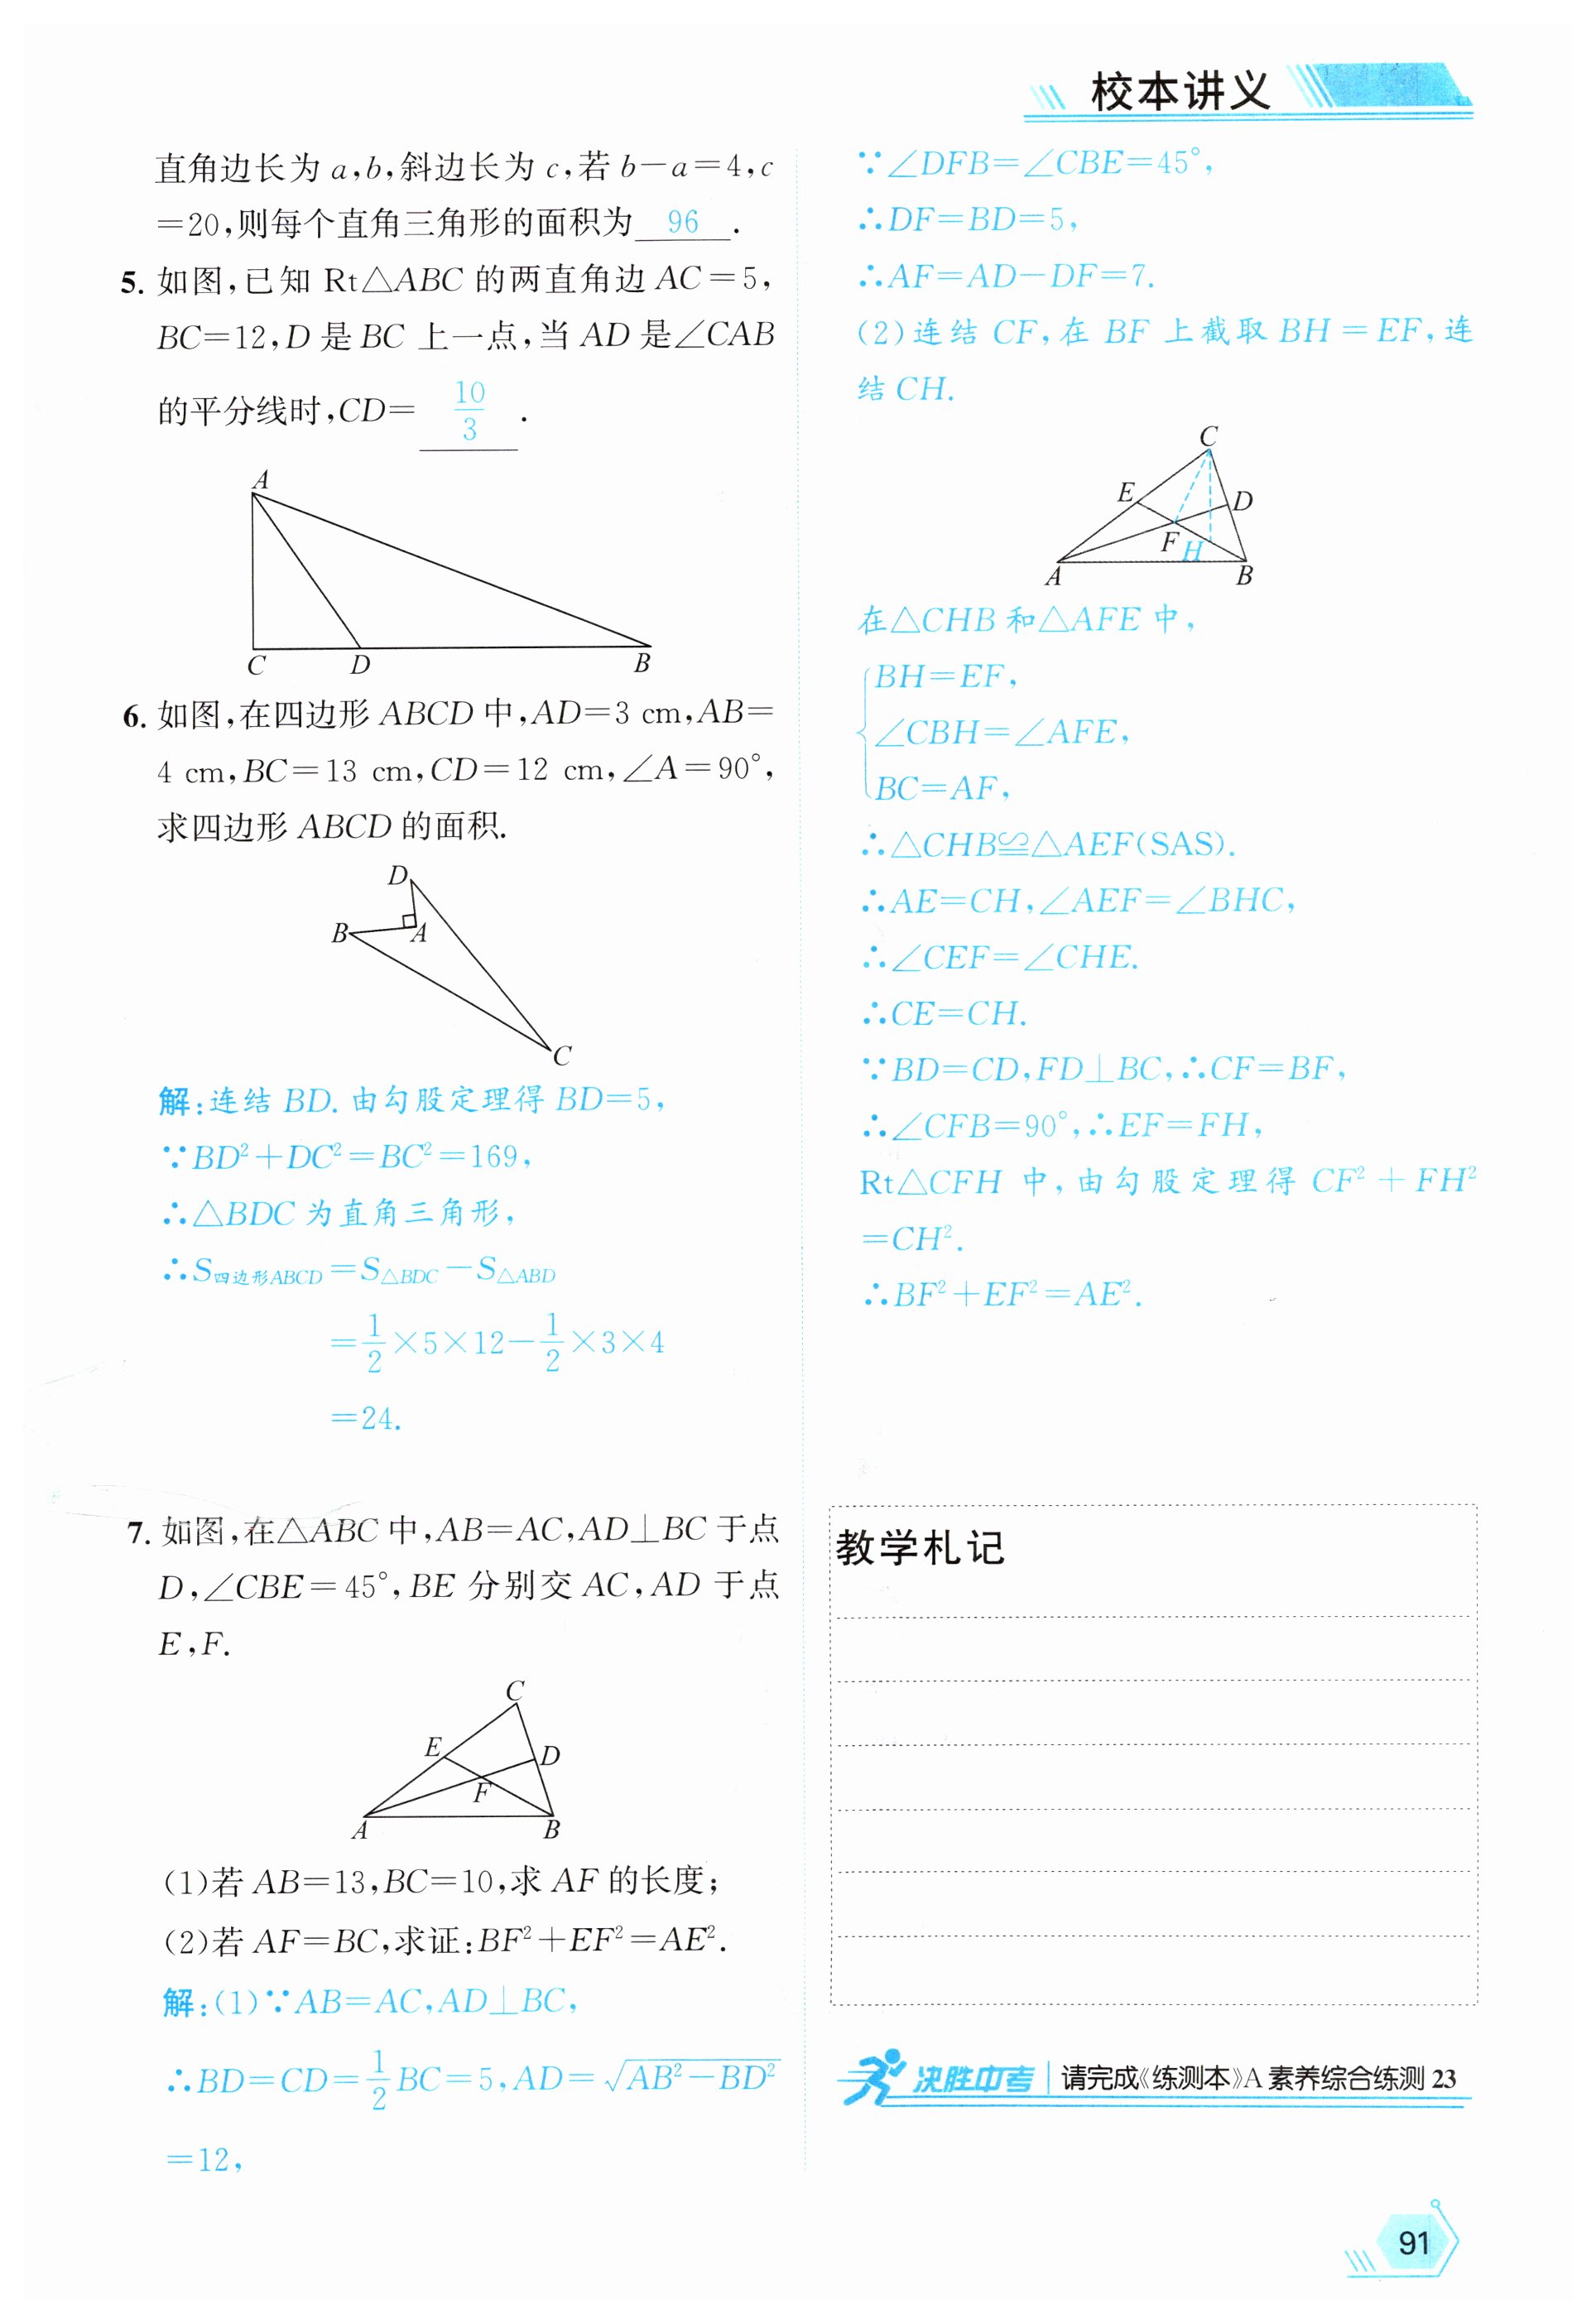 校本讲义
直角边长为 a,b,斜边长为 c,若 b-a=4,c
=20,则每个直角三角形的面积为 96 .
5. 如图,已知 Rt△ABC 的两直角边 AC=5,
BC=12,D 是 BC 上一点,当 AD 是∠CAB
的平分线时,CD= 10/3 .
A
C
D
B
6. 如图,在四边形 ABCD 中,AD=3 cm,AB=
4 cm,BC=13 cm,CD=12 cm,∠A=90°,
求四边形 ABCD 的面积.
D
B
A
C
解:连结 BD. 由勾股定理得 BD=5,
∵BD²+DC²=BC²=169,
∴△BDC 为直角三角形,
∴S四边形ABCD=S△BDC-S△ABD
=1/2×5×12-1/2×3×4
=24.
7. 如图,在△ABC 中,AB=AC,AD⊥BC 于点
D,∠CBE=45°,BE 分别交 AC,AD 于点
E,F.
C
E
D
F
A
B
(1)若 AB=13,BC=10,求 AF 的长度;
(2)若 AF=BC,求证:BF²+EF²=AE².
解:(1)∵AB=AC,AD⊥BC,
∴BD=CD=1/2BC=5,AD=√(AB²-BD²)
=12,
∵∠DFB=∠CBE=45°,
∴DF=BD=5,
∴AF=AD-DF=7.
(2)连结 CF,在 BF 上截取 BH=EF,连
结 CH.
C
E
D
F
H
A
B
在△CHB 和△AFE 中,
BH=EF,
∠CBH=∠AFE,
BC=AF,
∴△CHB≌△AEF(SAS).
∴AE=CH,∠AEF=∠BHC,
∴∠CEF=∠CHE.
∴CE=CH.
∵BD=CD,FD⊥BC,∴CF=BF,
∴∠CFB=90°,∴EF=FH,
Rt△CFH 中,由勾股定理得 CF²+FH²
=CH².
∴BF²+EF²=AE².
教学札记
决胜中考 请完成《练测本》A 素养综合练测 23
91